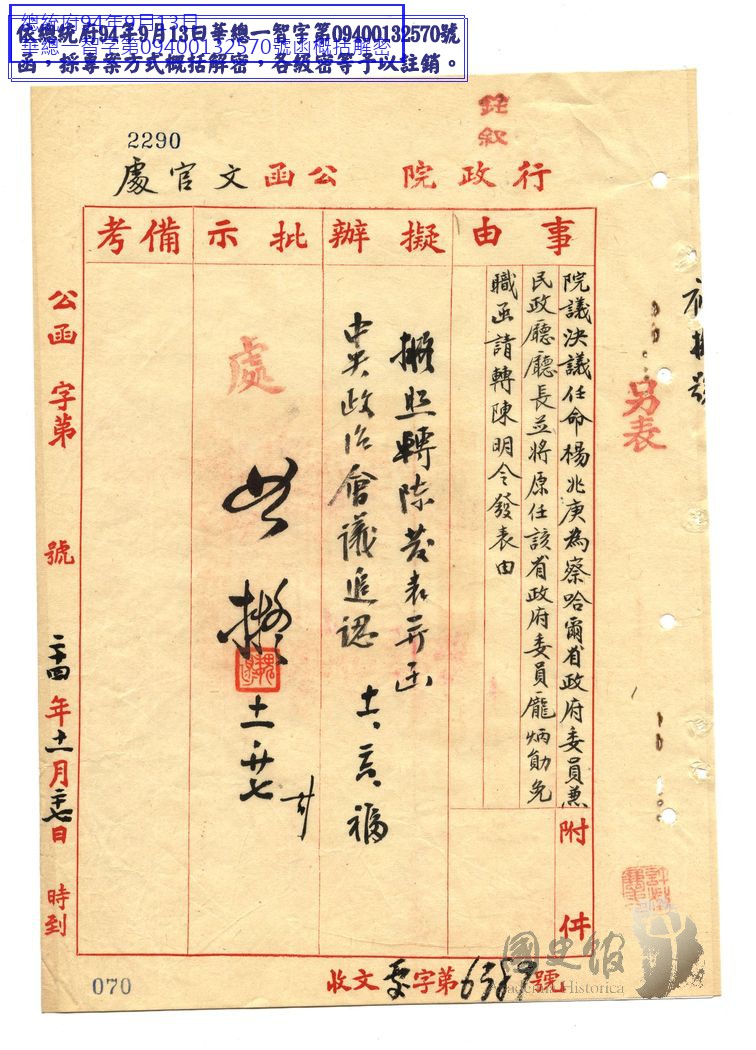 總統府94年9月13日
華總一智字第09400132570號函概括解密
依總統府94年9月13日華總一智字第09400132570號
函，採專案方式概括解密，各級密等予以註銷。
銓敘
2290
行政院 公函 文官處
事由
擬辦
批示
備考
院議決議任命楊兆庚為察哈爾省政府委員兼
民政廳廳長並將原任該省政府委員龐炳勛免
職函請轉陳明令發表由
附件
擬照轉陳發表并函
中央政治會議追認
處
如擬
十一 廿七
另表
公函 字第 號 二十四年十一月二十七日 時到
收文 字第6589號
070
國史館
Academia Historica